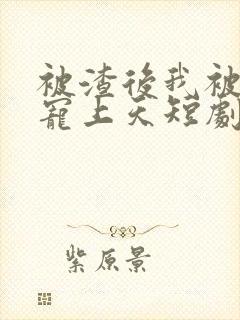 被渣後我被
寵上天短劇
紫原景